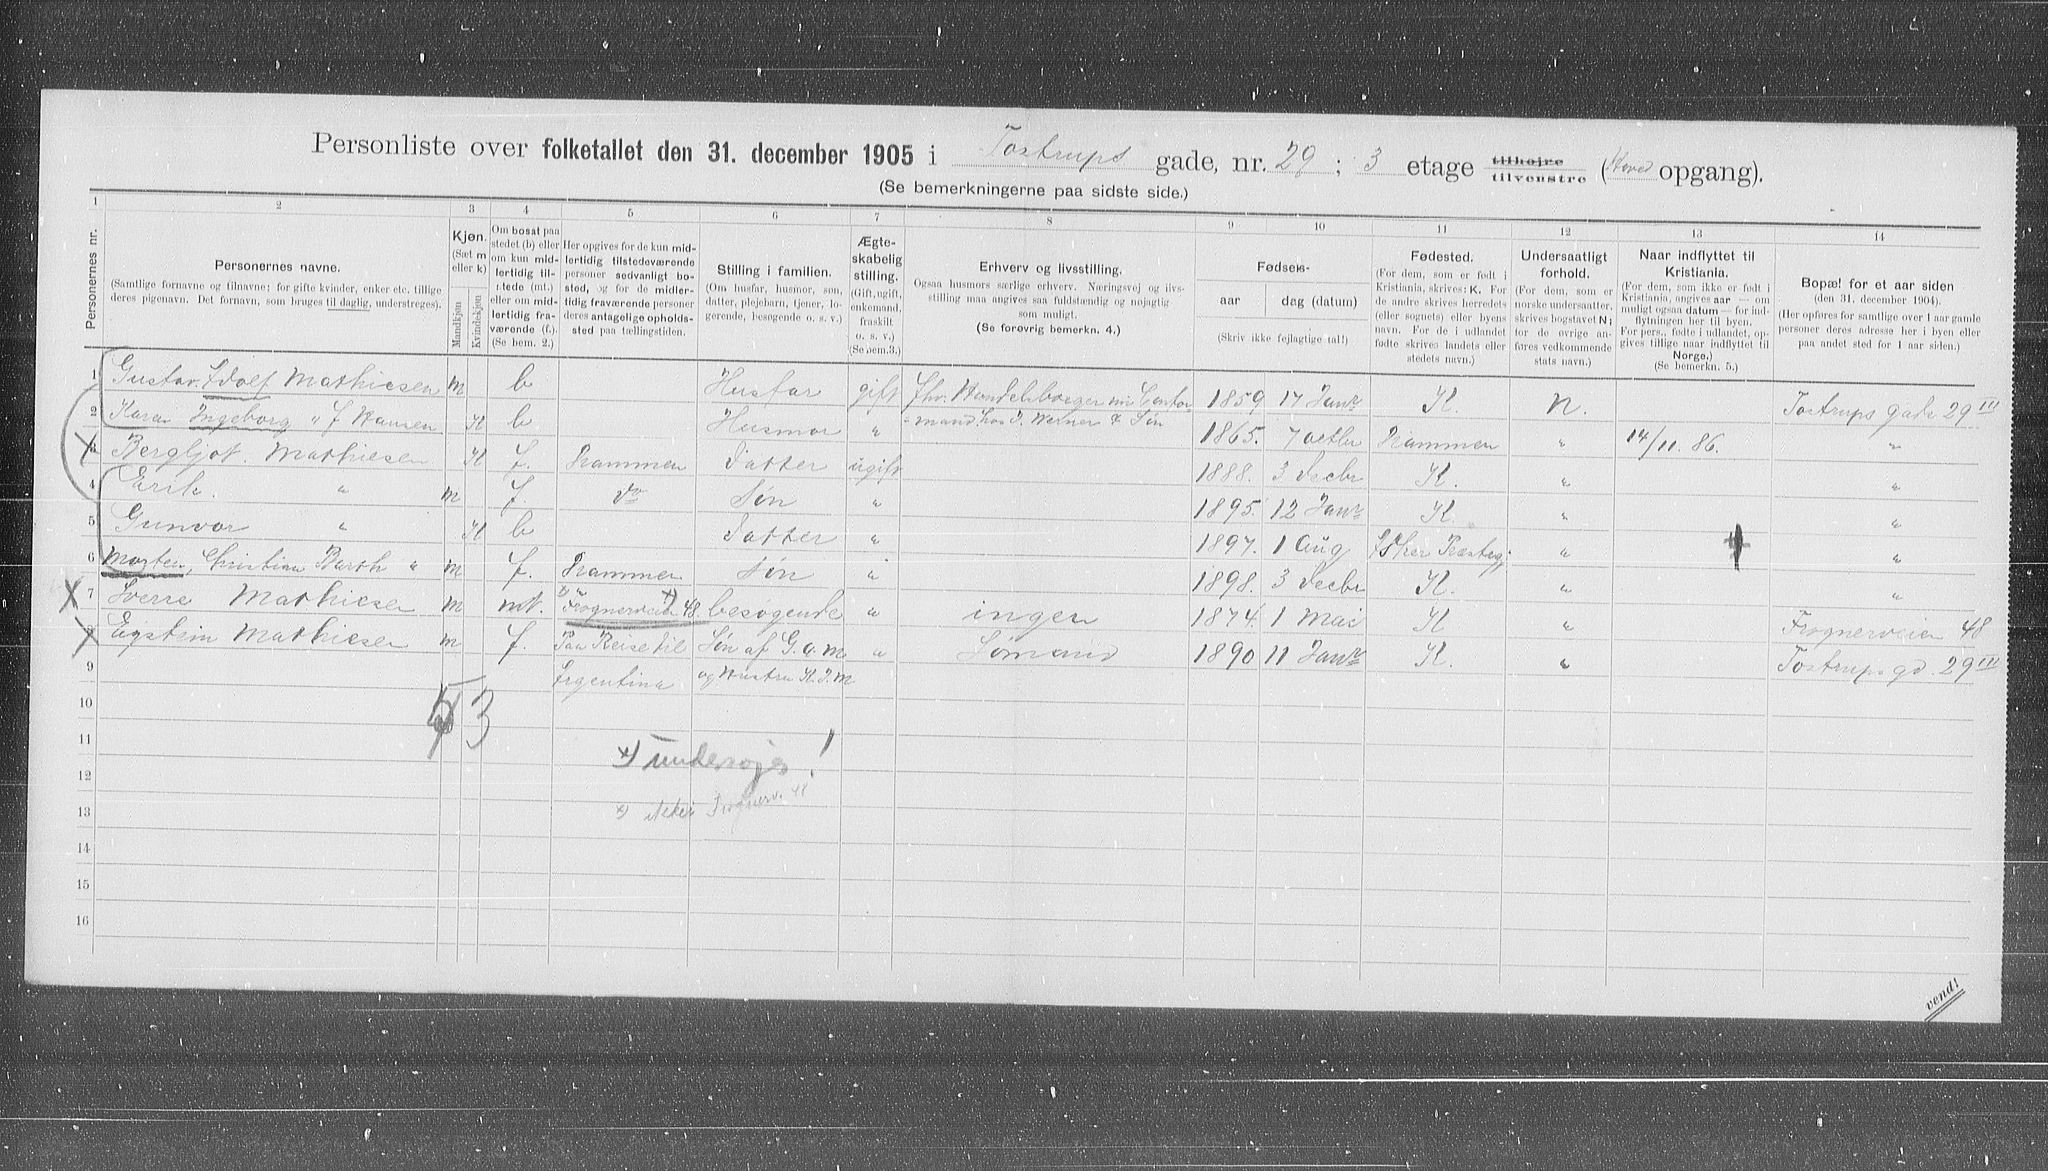 Personliste over folketallet den 31. december 1905 i Tostrups gade, nr. 29 ; 3 etage tilhøjre tilvenstre (Hoved opgang).
(Se bemerkningerne paa sidste side.)
1 2 3 4 5 6 7 8 9 10 11 12 13 14
Personernes nr.
Personernes navne.
(Samtlige fornavne og tilnavne; for gifte kvinder, enker etc. tillige deres pigenavn. Det fornavn, som bruges til daglig, understreges).
Kjøn.
(Sæt m eller k)
Mandkjøn
Kvindekjøn
Om bosat paa stedet (b) eller om kun midlertidig tilstede (mt.) eller om midlertidig fraværende (f.) (Se bem. 2.)
Her opgives for de kun midlertidig tilstedeværende personer sedvanligt bosted, og for de midlertidig fraværende personer deres antagelige opholdssted paa tællingstiden.
Stilling i familien.
(Om husfar, husmor, søn, datter, plejebarn, tjener, logerende, besøgende o. s. v.)
Ægteskabelig stilling.
(Gift, ugift, enkemand, fraskilt o. s. v.)
(Se bem.3.)
Erhverv og livsstilling.
Ogsaa husmors særlige erhverv. Næringsvej og livsstilling maa angives saa fuldstændig og nøjagtig som muligt.
(Se forøvrig bemerkn. 4.)
Fødsels-
aar
dag (datum)
(Skriv ikke fejlagtige tal!)
Fødested.
(For dem, som er født i Kristiania, skrives: K. For de andre skrives herredets (eller sognets) eller byens navn. For de i udlandet fødte skrives landets eller stedets navn.)
Undersaatligt forhold.
(For dem, som er norske undersaatter, skrives bogstavet N; for de øvrige anføres vedkommende stats navn.)
Naar indflyttet til Kristiania.
(For dem, som ikke er født i Kristiania, angives aar — om muligt ogsaa datum — for indflytningen her til byen. For pers., fødte i udlandet, opgives tillige naar indflyttet til Norge.)
(Se bemerkn. 5.)
Bopæl for et aar siden
(den 31. december 1904).
(Her opføres for samtlige over 1 aar gamle personer deres adresse her i byen eller paa andet sted for 1 aar siden.)
1 Gustav. Adolf Mathiesen m b Husfar gift fhv. Handelsborger nu Contor 1859 17 Janr K. N. Tostrups gade 29 III
2 Karen Ingeborg " f Hansen K b Husmor " =mand hos J. Werner & Søn 1865. 7 octbr Drammen " 14/11. 86. "
3 Bergljot. Mathiesen K f. Drammen Datter ugift 1888. 3 Decbr K. " "
4 Erik. " m f. do Søn " 1895. 12 Janr K. " "
5 Gunvor " K b Datter " 1897. 1 Aug Asker Præsteg: " "
6 Morten, Christian Barth " m f. Drammen Søn " 1898. 3 Decbr K. " "
7 Sverre Mathiesen m mt. Frognerveien 48. besøgende " ingen 1874. 1 Mai K " Frognerveien 48
8 Eystein Mathiesen m f. Paa Reise til Søn af G. A. M " Sømand 1890 11 Janr K. " Tostrups gd. 29 III
9 Argentina og Hustru K. I. M
10
5 3
11
x) undersøges!
12
x) Frognerv. 48
13
14
15
16
vend!